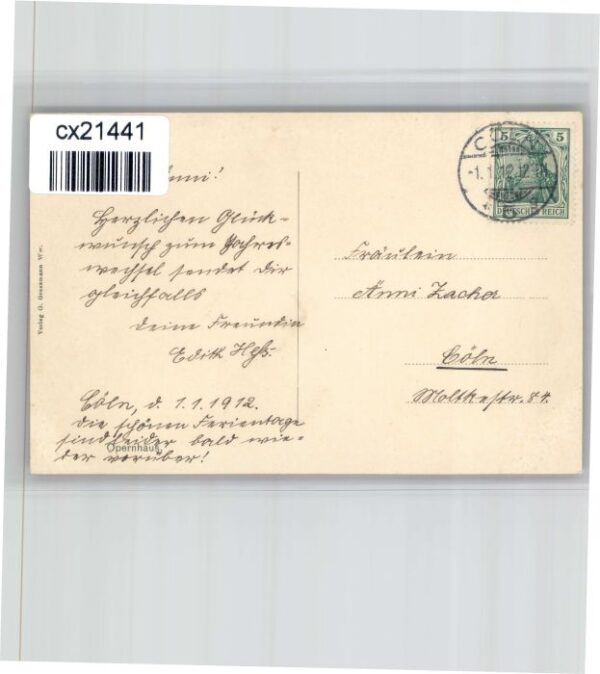 cx21441
Anni!
Herzlichen Glück-
wunsch zum Jahres-
wechsel sendet dir
gleichfalls
deine Freundin
Edith Heß.
Cöln, d. 1.1.1912.
die schönen Ferientage
sind leider bald wie-
der vorüber!
Opernhaus
Verlag G. Grossmann Ww.
CÖLN
-1.1.12.12
5 5
DEUTSCHES REICH
Fräulein
Anni Zacher
Cöln
Moltkestr. 84.